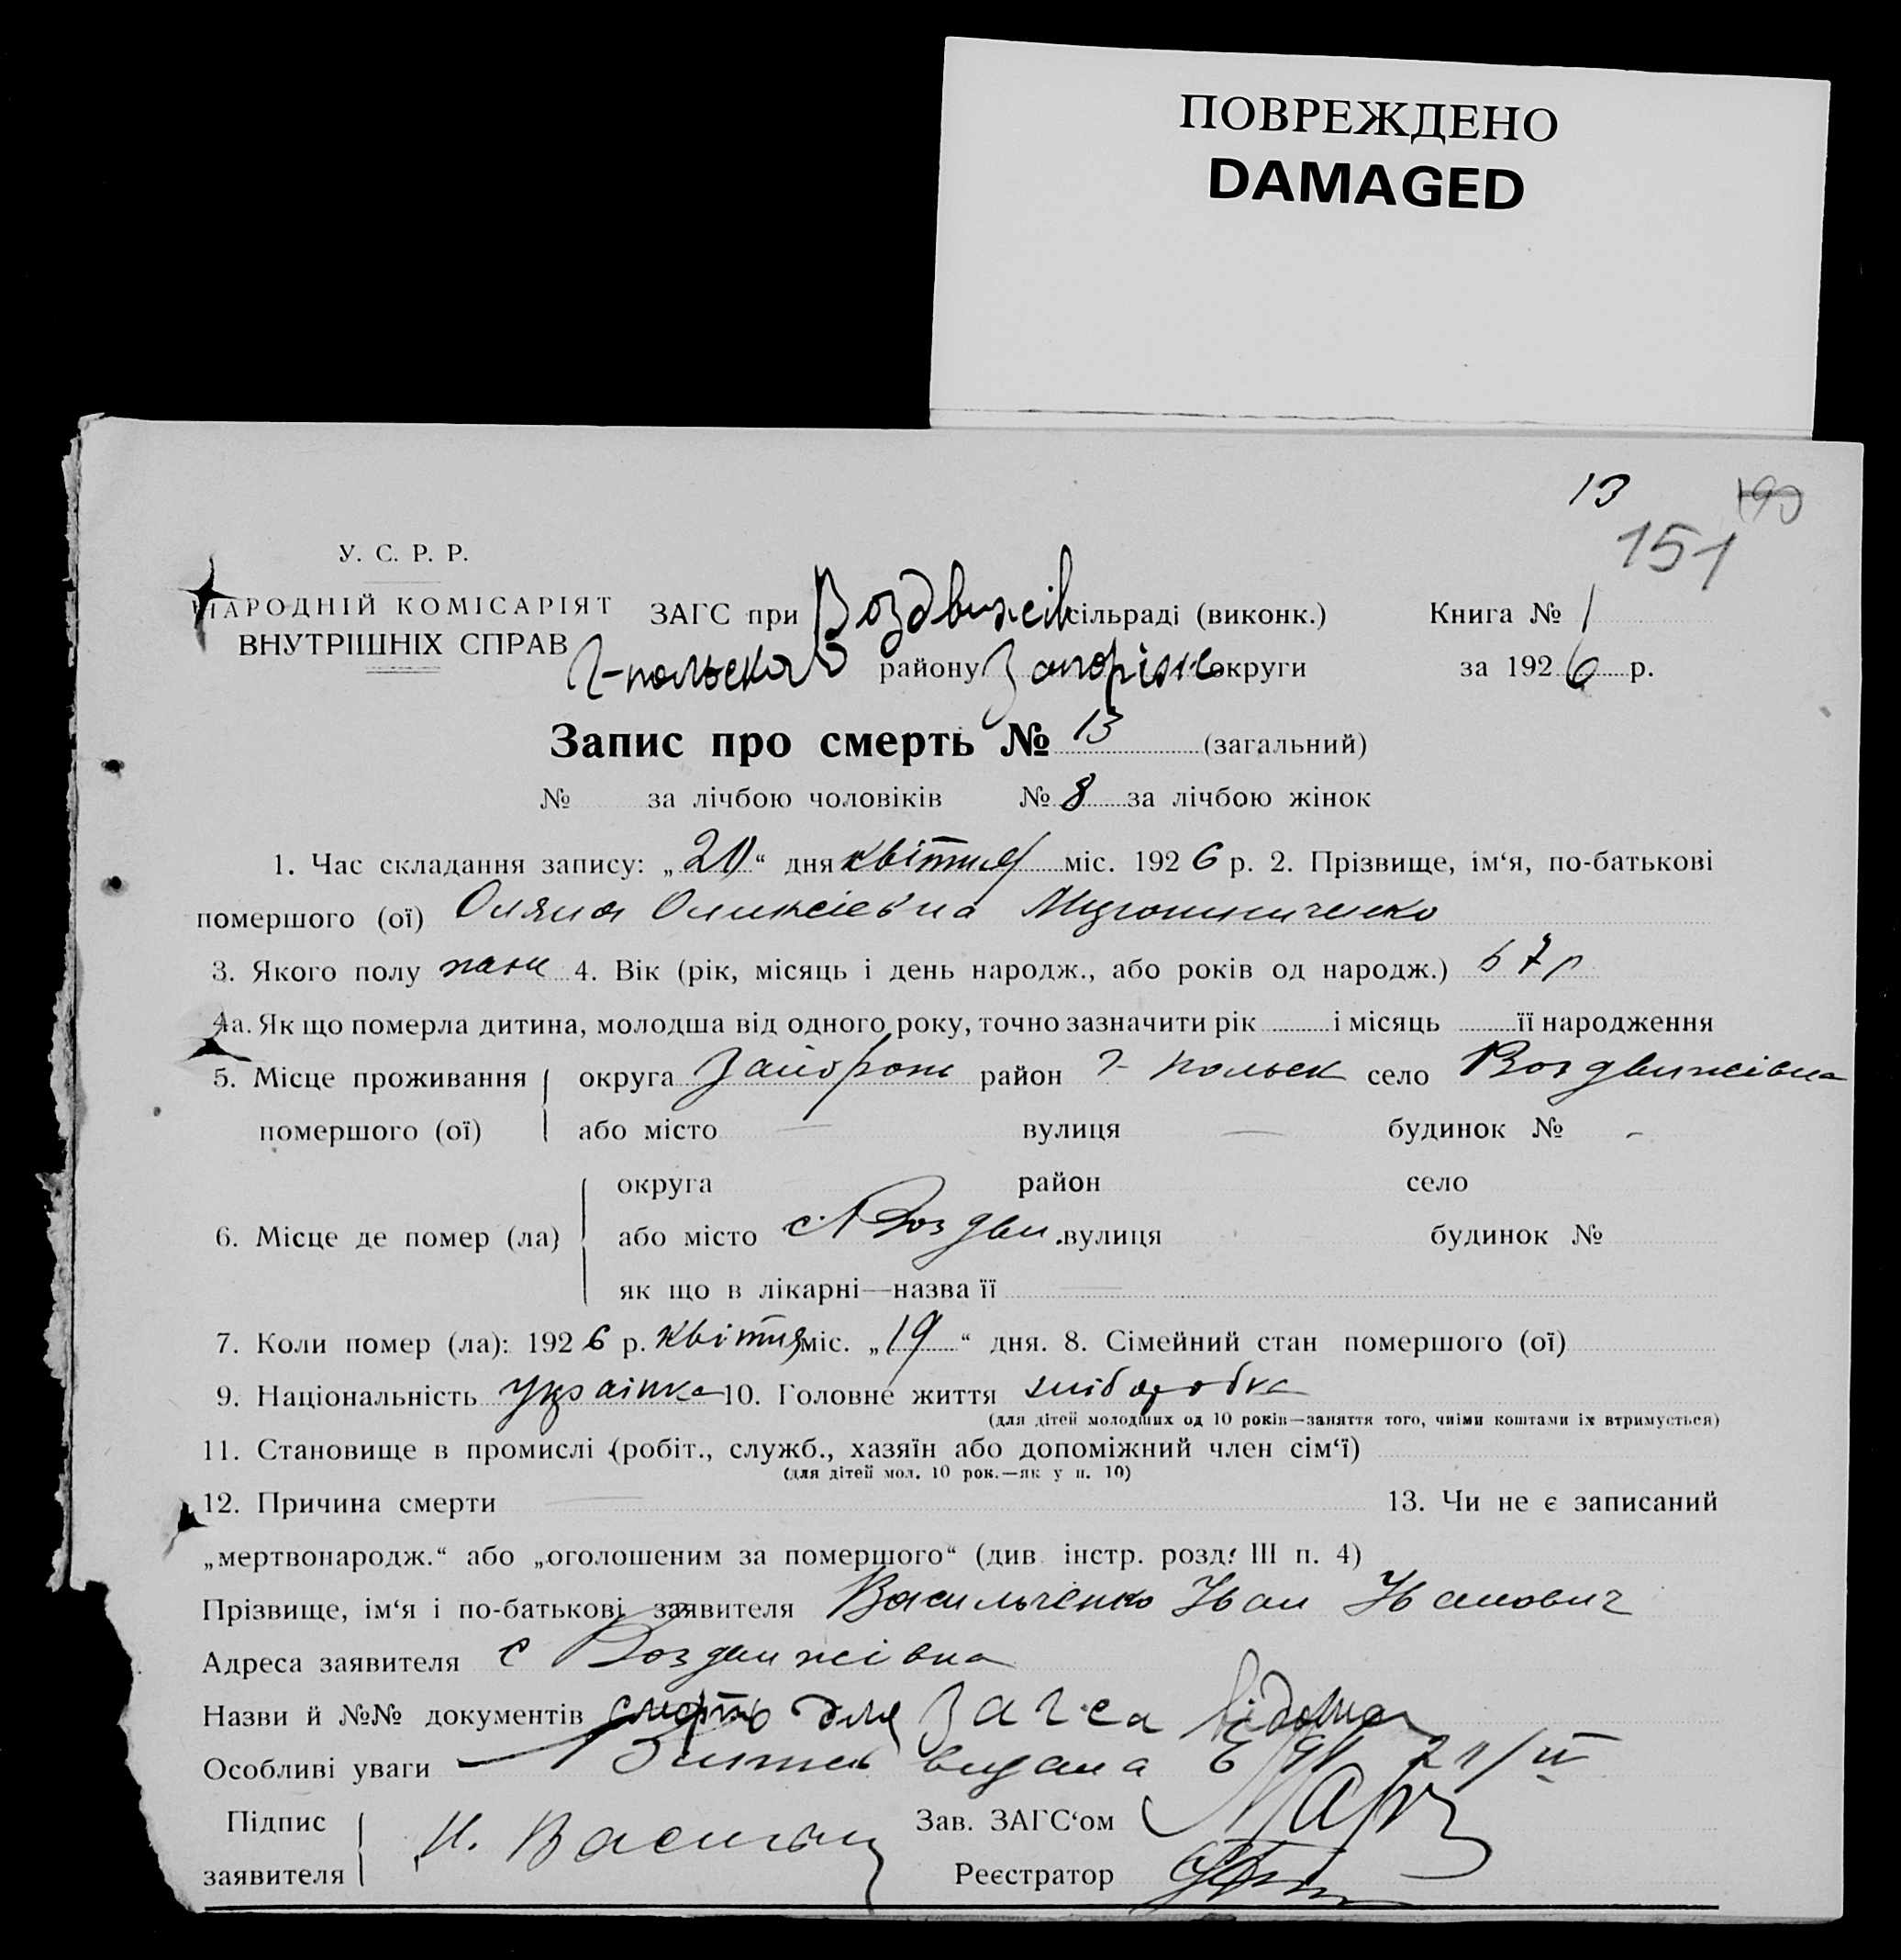 ПОВРЕЖДЕНО
DAMAGED
13 190
151
У. С. Р. Р.
НАРОДНІЙ КОМІСАРІЯТ
ВНУТРІШНІХ СПРАВ
ЗАГС при Воздвижів сільраді (виконк.) Книга № 1
Г-польского району Запоріж округи за 1926 р.
Запис про смерть № 13 (загальний)
№ за лічбою чоловіків № 8 за лічбою жінок
1. Час складання запису: „20“ дня квітня міс. 1926 р. 2. Прізвище, ім‘я, по-батькові
помершого (ої) Оляна Олексієвна Мірошниченко
3. Якого полу жен 4. Вік (рік, місяць і день народж., або років од народж.) 67 р
4а. Як що померла дитина, молодша від одного року, точно зазначити рік і місяць її народження
5. Місце проживання округа Запорож район Г-польск село Воздвижівна
помершого (ої) або місто — вулиця — будинок № -
округа район село
6. Місце де помер (ла) або місто с. Воздви. вулиця будинок №
як що в лікарні—назва її
7. Коли помер (ла): 1926 р. квітня міс. „19“ дня. 8. Сімейний стан помершого (ої)
9. Національність українка 10. Головне життя хліборобка
(для дітей молодших од 10 років—заняття того, чиїми коштами їх втримується)
11. Становище в промислі (робіт., служб., хазяїн або допоміжний член сім‘ї)
(для дітей мол. 10 рок.—як у п. 10)
12. Причина смерти — 13. Чи не є записаний
„мертвонародж.“ або „оголошеним за помершого“ (див. інстр. розд. III п. 4)
Прізвище, ім‘я і по-батькові заявителя Васильченко Іван Іванович
Адреса заявителя с Воздвижівна
Назви й №№ документів смерть для Загса відома
Особливі уваги — видана
Підпис Зав. ЗАГС‘ом
заявителя И. Василь Реєстратор